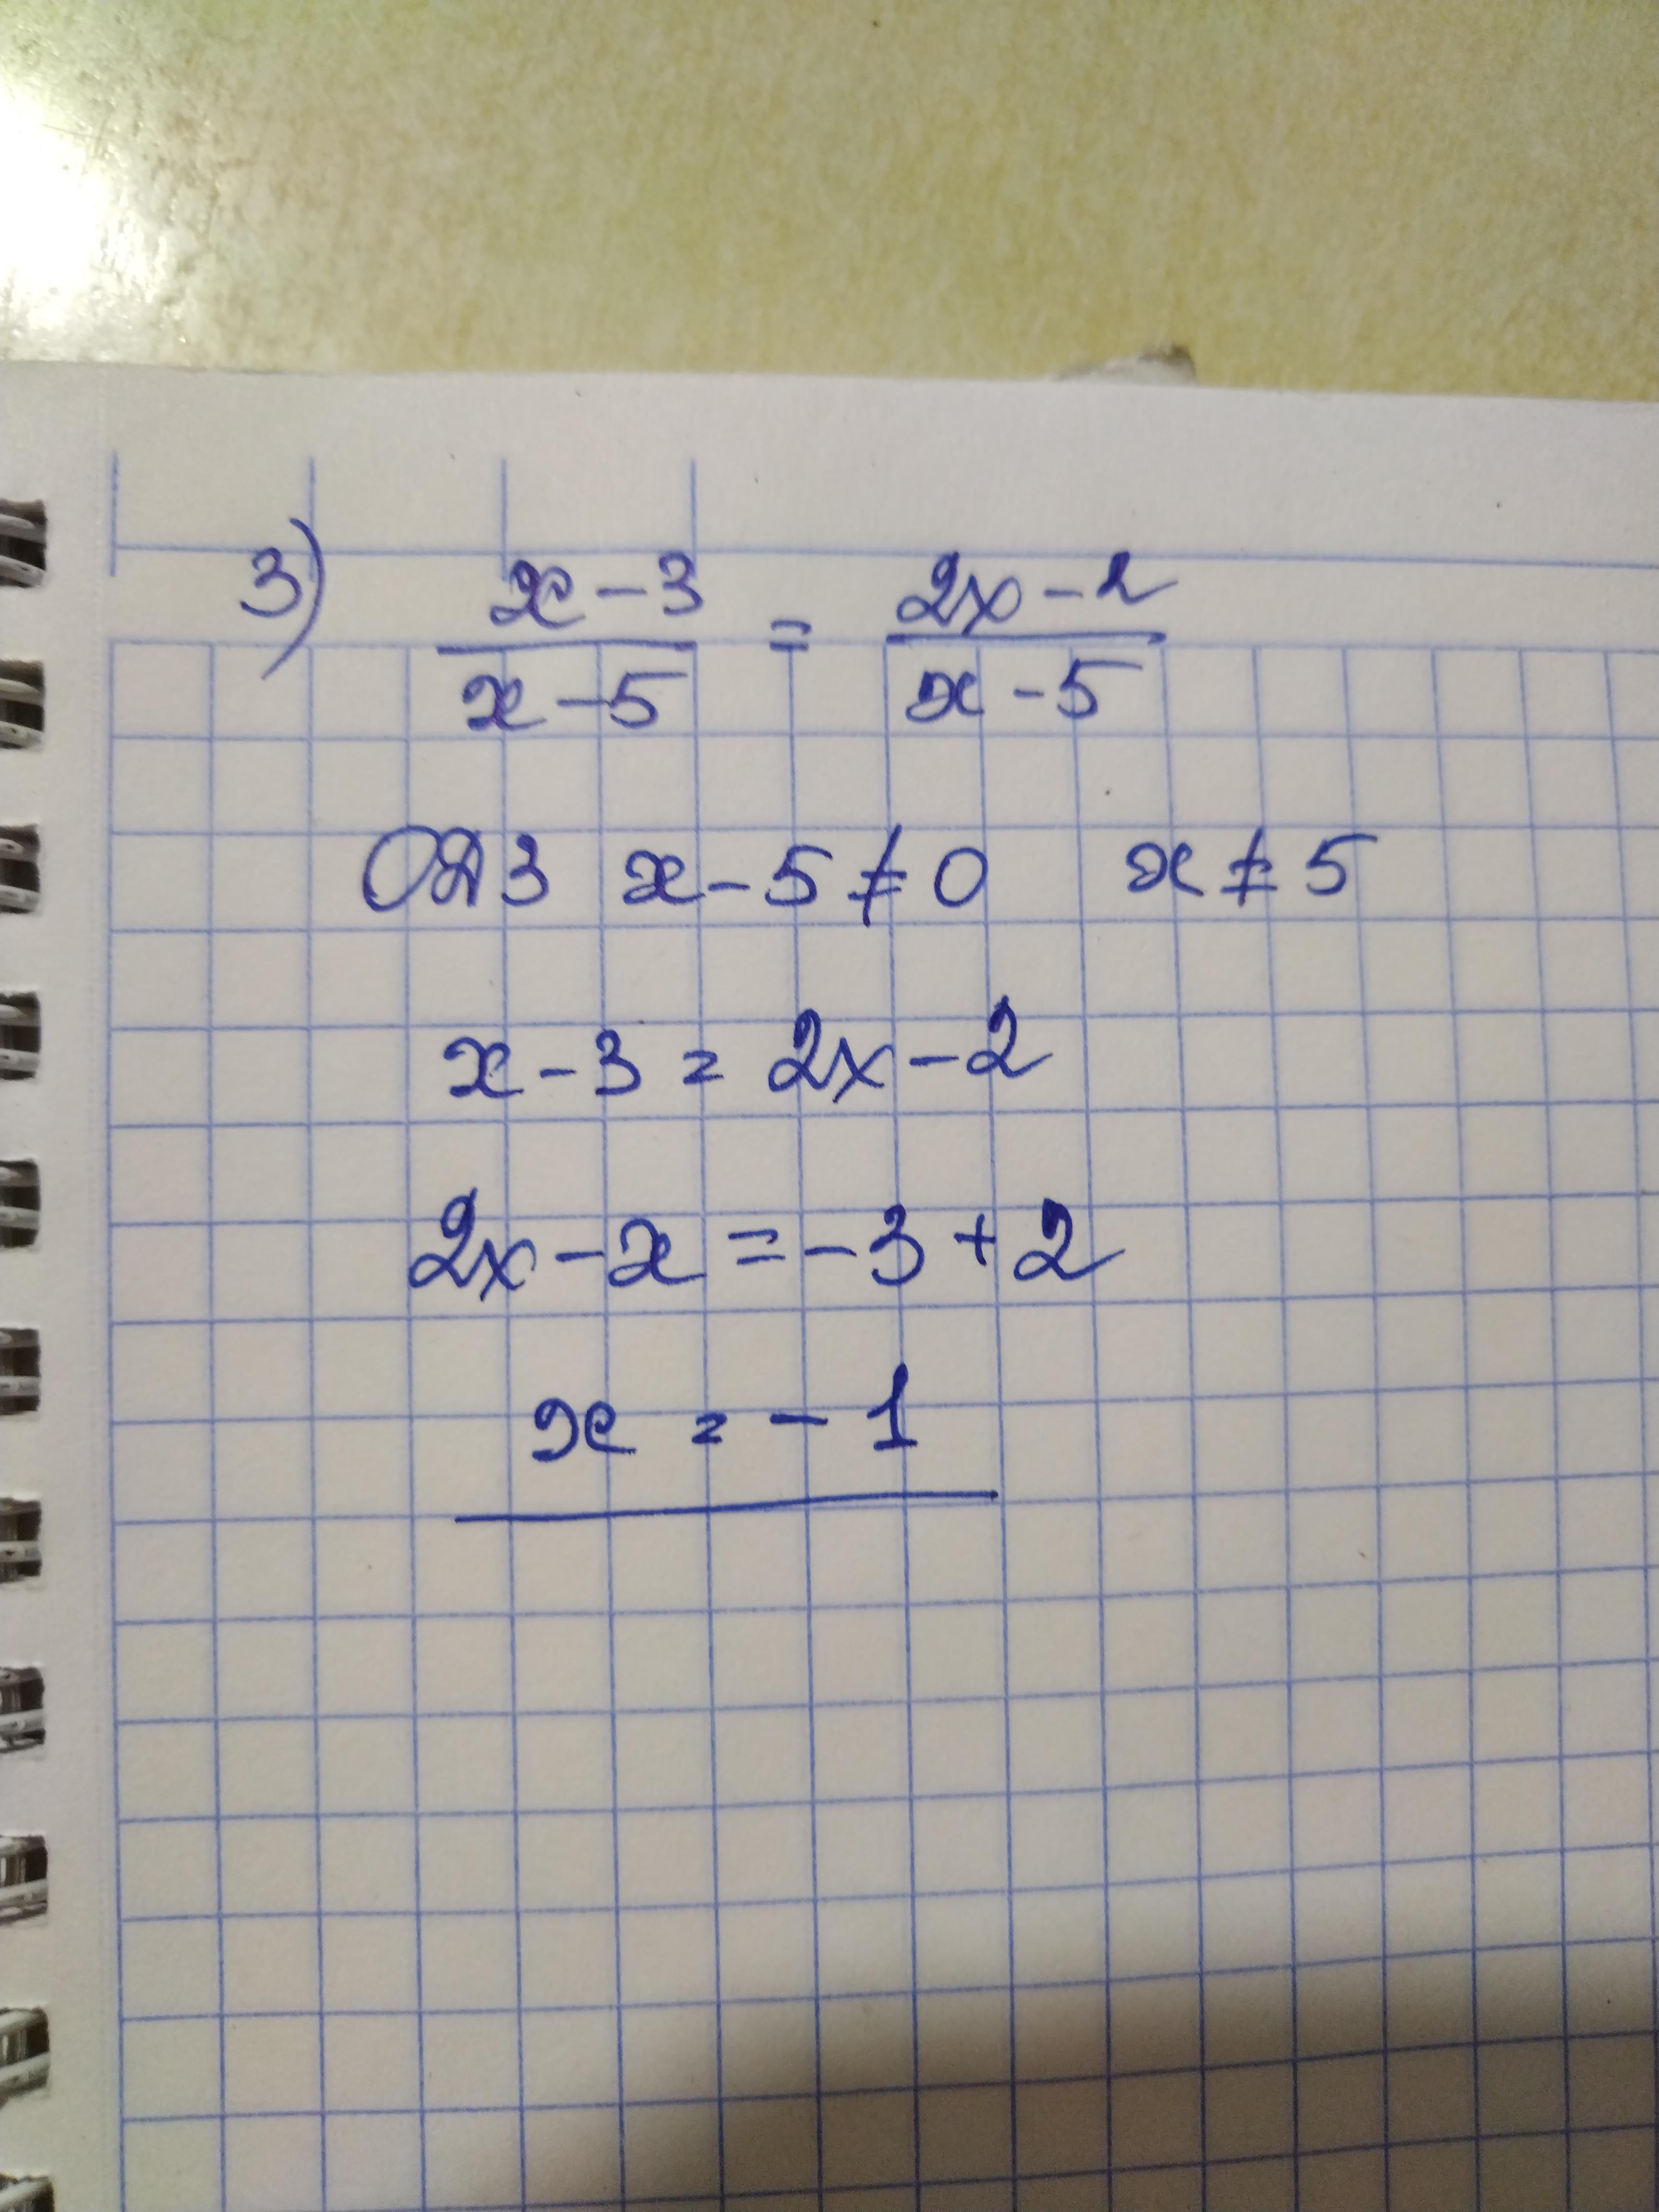 3) x-3/x-5 = 2x-2/x-5
ОДЗ x-5≠0 x≠5
x-3=2x-2
2x-x=-3+2
x=-1